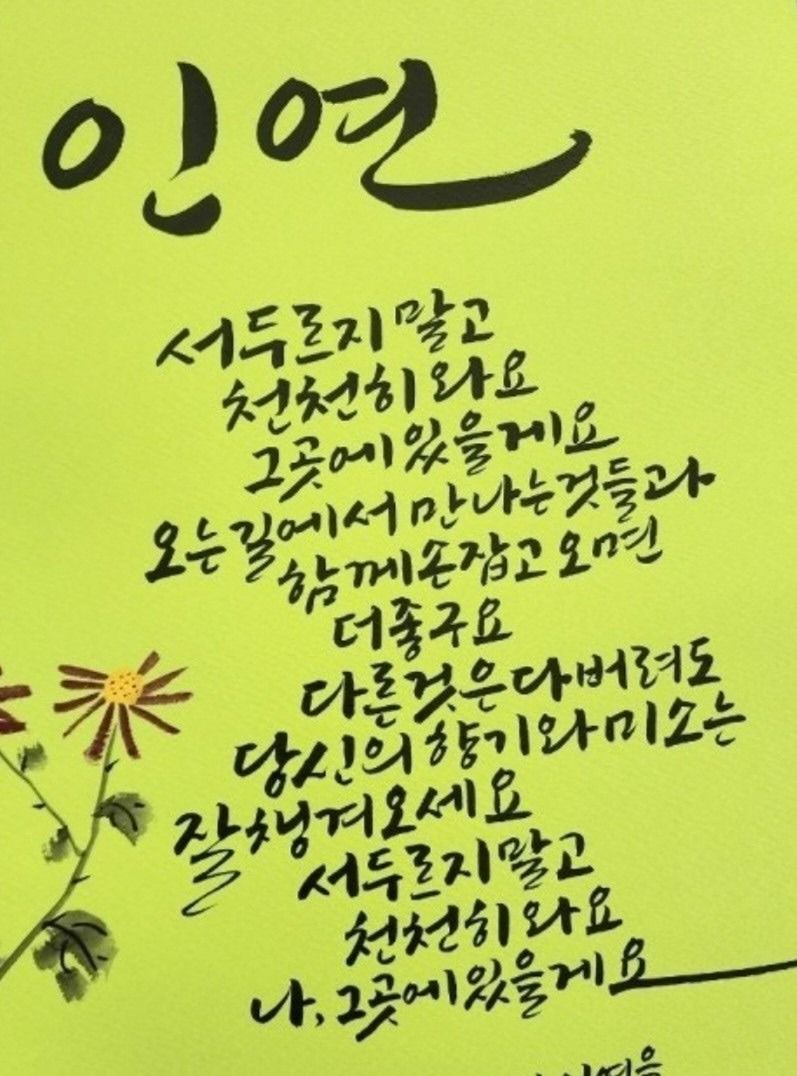 인연
서두르지 말고
천천히 와요
그곳에 있을게요
오는 길에서 만나는 것들과
함께 손잡고 오면
더 좋구요
다른것은 다 버려도
당신의 향기와 미소는
잘 챙겨 오세요
서두르지 말고
천천히 와요
나, 그곳에 있을게요